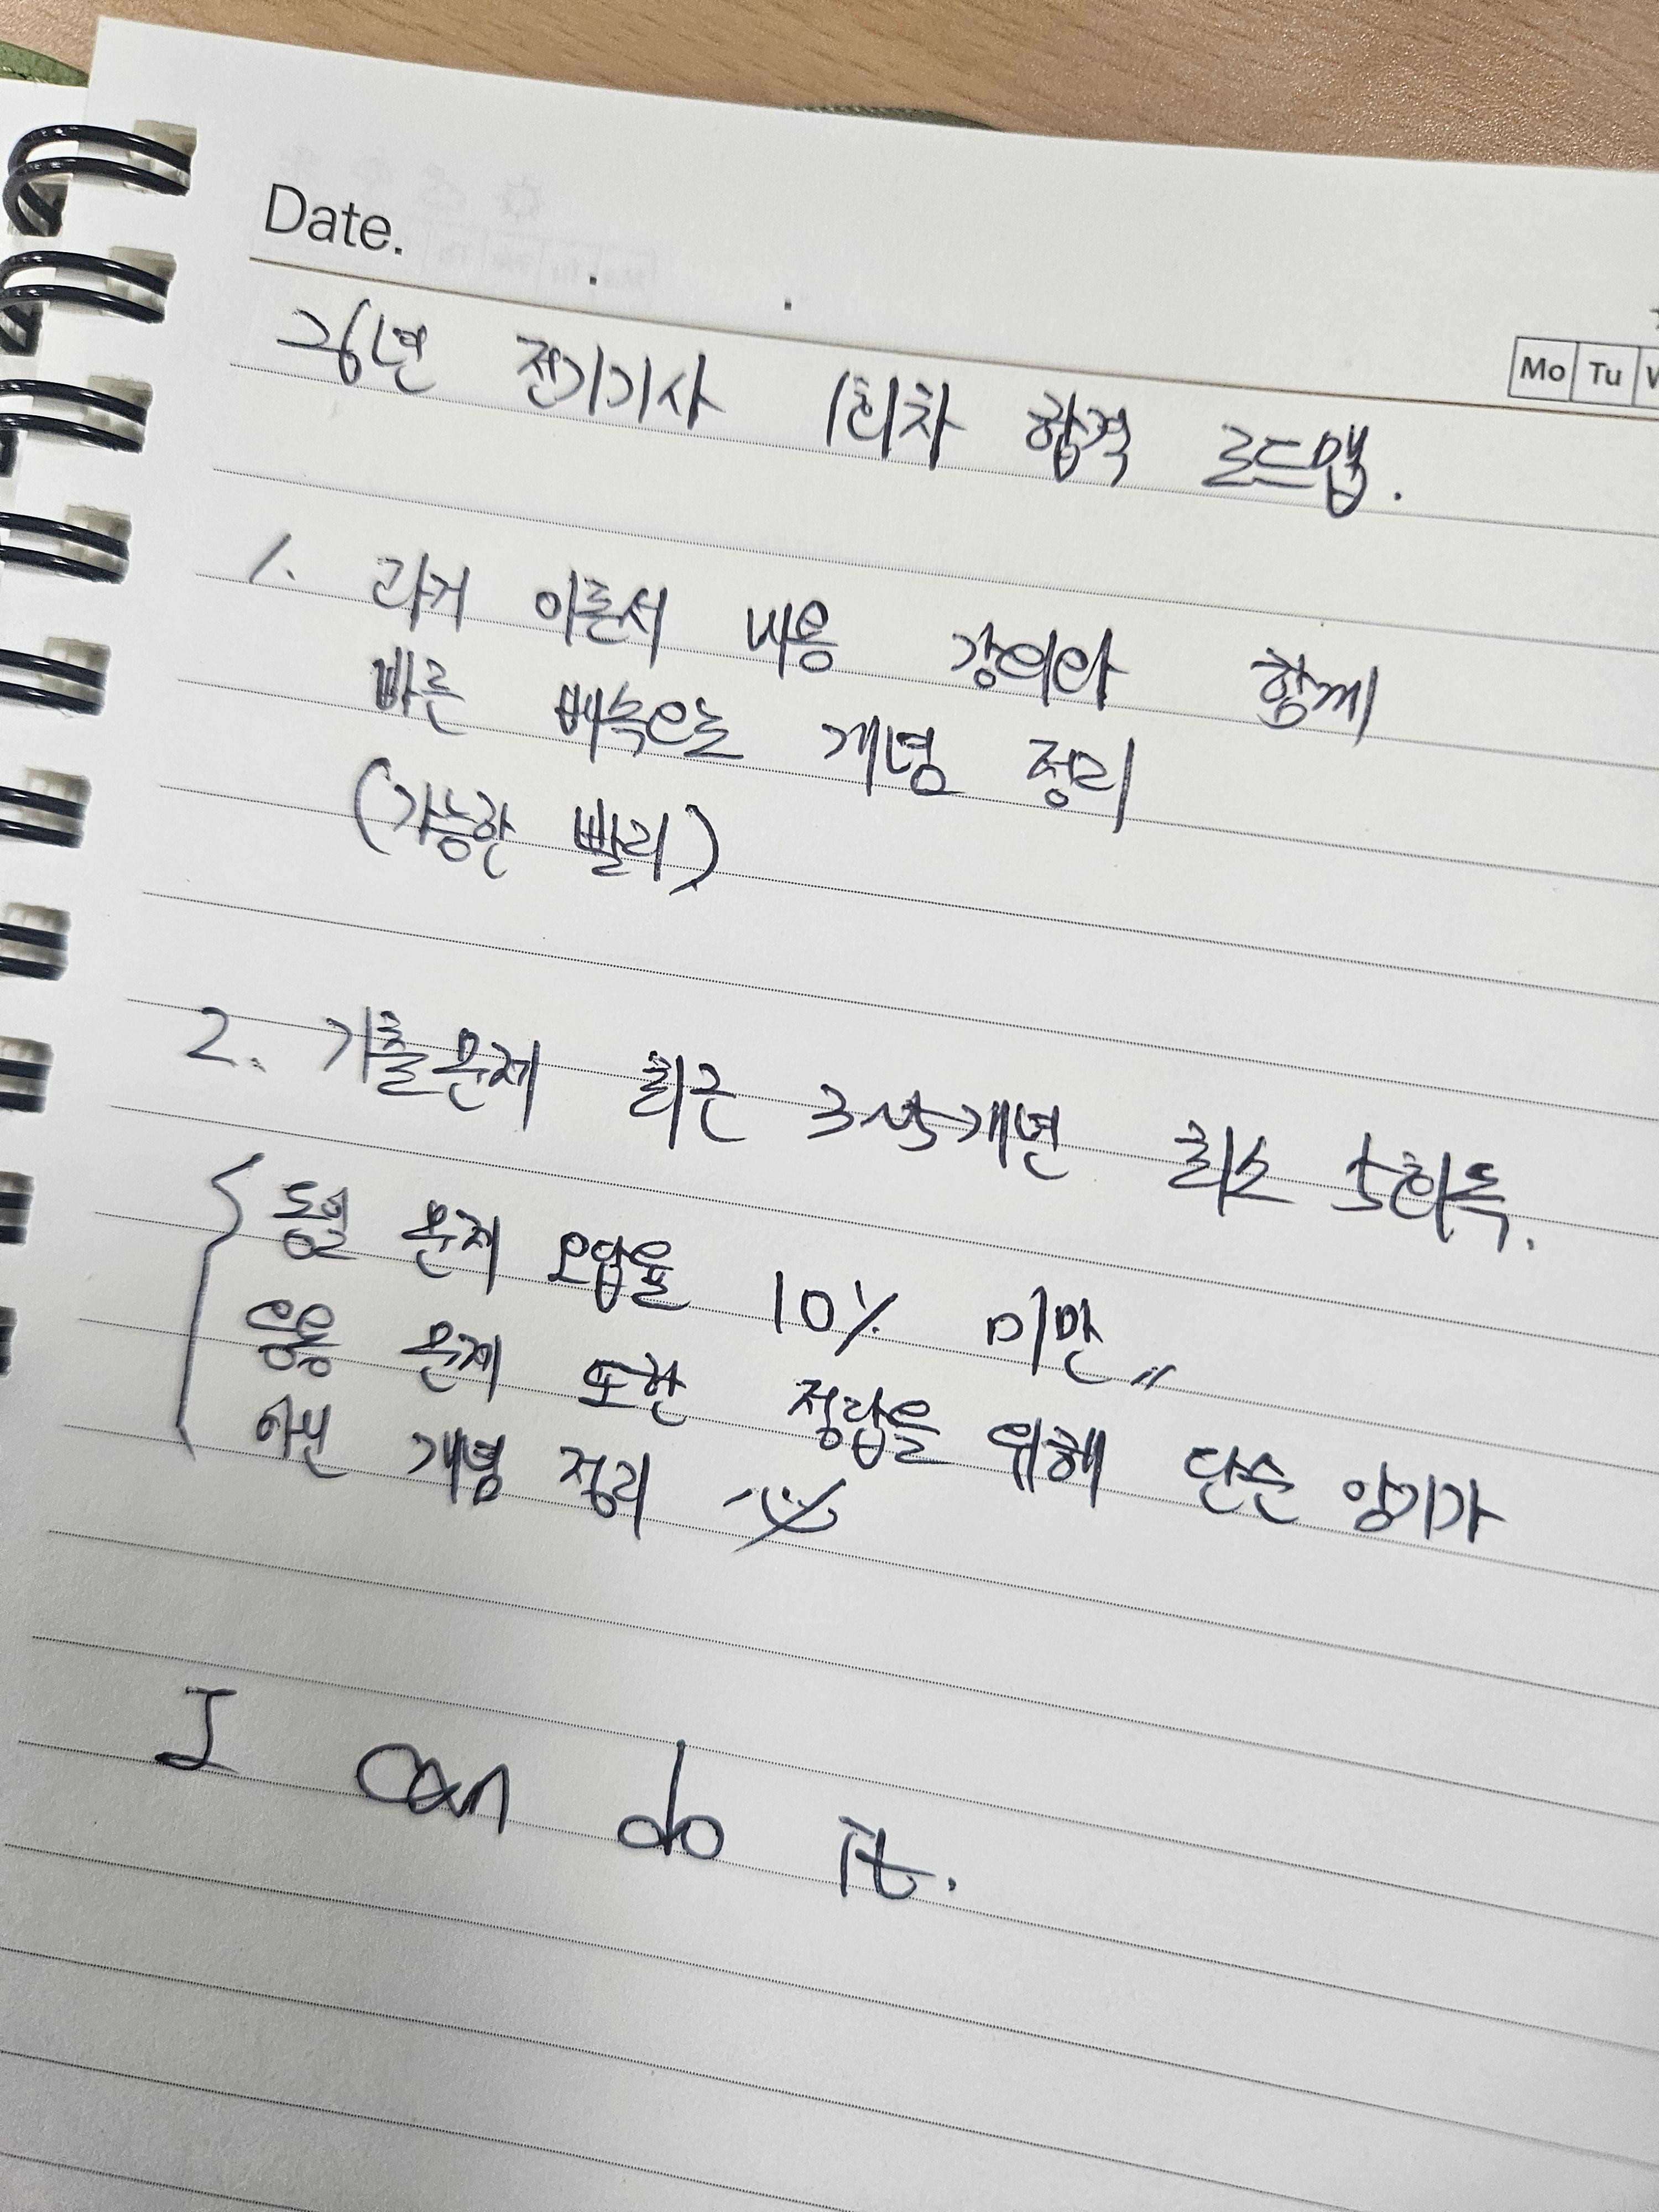 Date.
Mo Tu
26년 전기기사 1회차 합격 로드맵.
1. 과거 이론서 내용 강의와 함께
빠른 배속으로 개념 정리
(가능한 빨리)
2. 기출문제 최근 3~5개년 최소 5회독.
동일 문제 오답율 10% 미만〃
응용 문제 또한 정답을 위해 단순 암기가
아닌 개념 정리
I can do it.